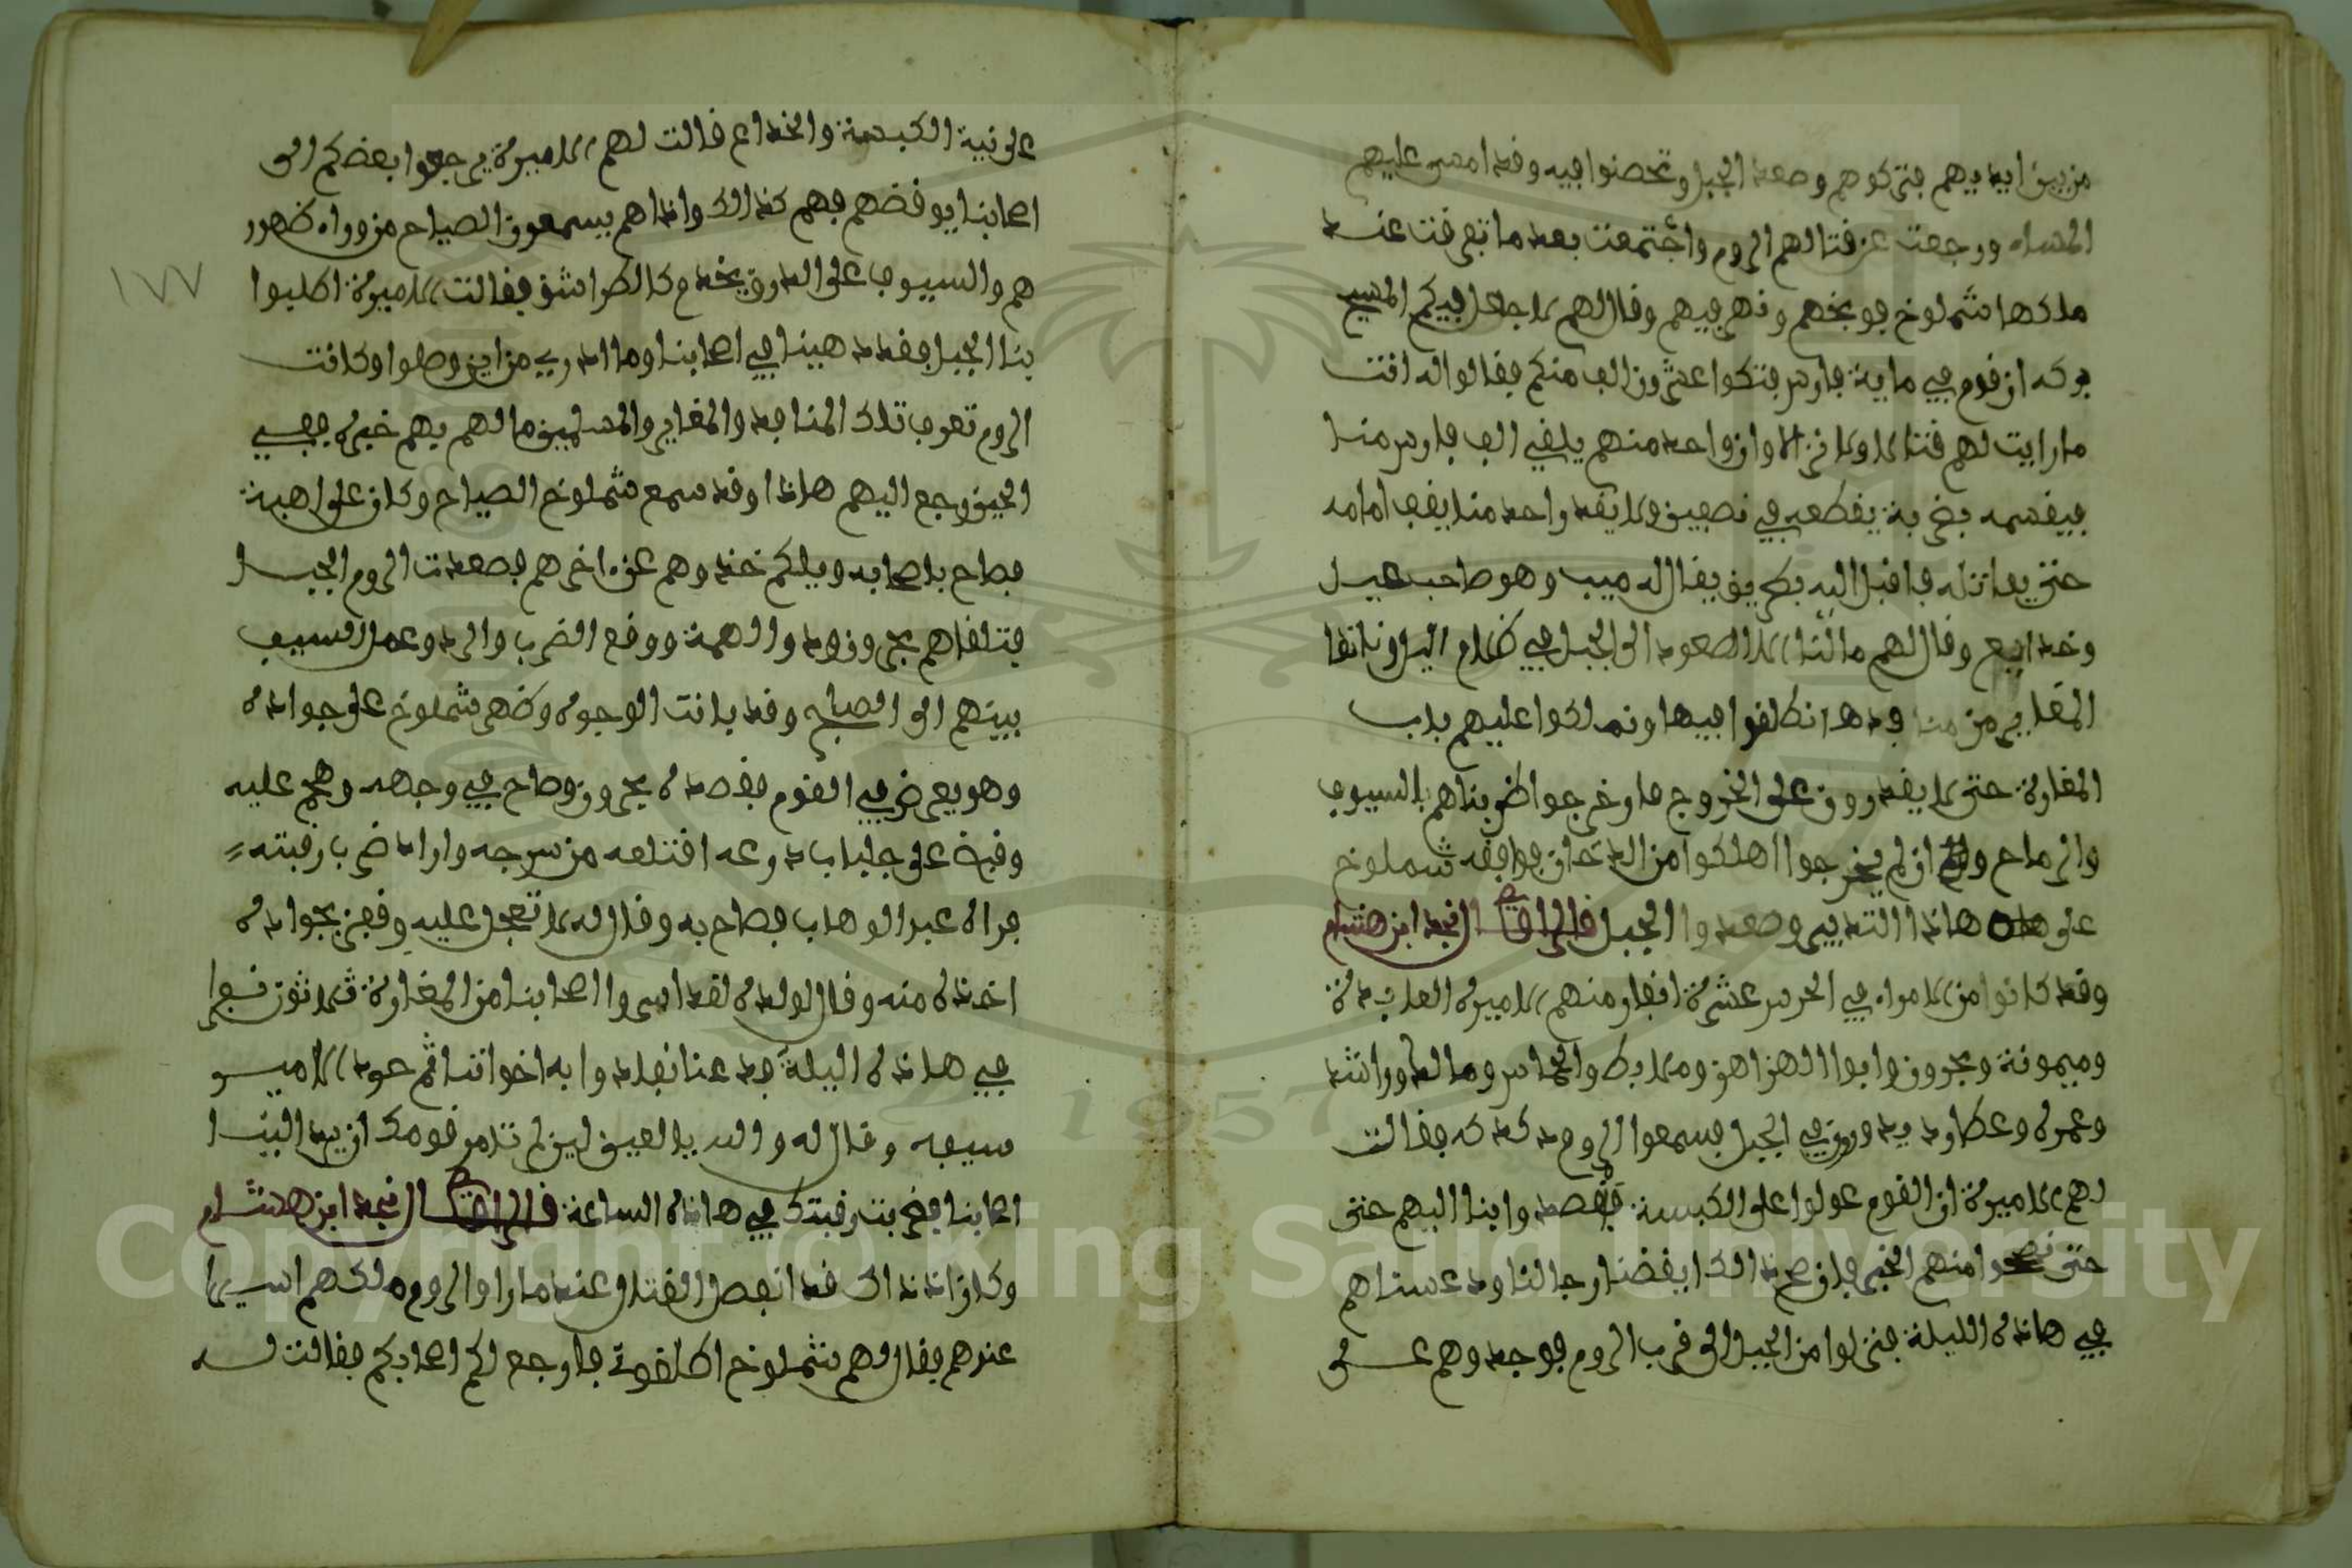 من بين ايديهم فتركوهم وصعد الجبل وتحصنوا فيه وقد امسى عليهم
المساء ورجعت عزقتا لهم الروم واجتمعت بعد ما تفرقت عند
ملكها شملوخ فوبخهم ونهرهم وقال لهم لا جعل فيكم المسيح
بركه ان قوم في ماية فارس قتلوا عشرون الف منكم فقالوا له انت
ما رايت لهم قتالا ولا نزالا وان واحد منهم يلقي الف فارس منا
فيقسمه بضربة يقطعه في نصفين ولا يقد واحد منا يقف امامه
حتى يقاتله فاقبل اليه بطريق يقال له ميب وهو صاحب حيل
وخدايع وقال لهم ما لنا الا الصعود الى الجبل في ظلام اليل وناخذا
المغاير من منا فدها نطلقوا فيها ونملكوا عليهم باب
المغارة حتى لا يقدرون على الخروج فاو خرجوا ضربناهم بالسيوف
والرماح وان لم يخرجوا اهلكوا من الدخان فوافقه شملوخ
على هاذا التدبير وصعدوا الجبل قال الراوي قال نجد ابن هشام
وقد كانوا من الامراء في الحرس عشرة انفار منهم الاميرة العابدة
وميمونة وبحرون وابوا الهزاهز وملا بط والجماس ومالك وراشد
وعمره وعطارد يدورون في الجبل فسمعوا الروم دكدكه فقالت
لهم الاميرة ان القوم عولوا على الكبسة فاقصدوا بنا اليهم حتى
حتى نصحوا منهم الخبر فان صح ذالك ايقضنا رجالنا ودعسناهم
في هاذه الليلة فنزلوا من الجبل الى قرب الروم فوجدوهم على
على نية الكبسة والخداع قالت لهم الاميرة يرجعوا بعضكم الى
اصحابنا يوقضهم فهم كذالك واذاهم يسمعون الصياح من وراء ظهور
هم والسيوف على الدروق يخدم كالطراشق فقالت الاميرة اطلبوا
بنا الجبل فقد دهينا في اصحابنا وما ادري من اين وصلوا وكانت
الروم تعرف تلك المنافد والمغاير والمسلمين ما لهم بهم خبره ففي
الحين رجع اليهم هاذا وقد سمع شملوخ الصياح وكان على اهبة
فصاح باصحابه ويلكم خذوهم عن اخرهم فصعدت الروم الجبل
فتلقاهم بحرون واولاد الهمة ووقع الضرب والرد وعمل السيف
بينهم الى الصباح وقد بانت الوجوه وظهر شملوخ على جواده
وهو يحرض في القوم فقصده بحرون وصاح في وجهه وهجم عليه
وقبض على جلباب درعه اقتلعه من سرجه واراد ضرب رقبته
فراه عبد الوهاب فصاح به وقال له لا تعجل عليه وقفز بجواده
اخذه منه وقال لولده لقد اسروا اصحابنا من المغارة ثلاثون نفرا
في هاذه اليلة فدعنا نفادوا به اخواتنا ثم دعود الامير
سيفه وقال له والله يا لعين لين لم تامر قومك ان يردو الينا
اصحابنا ضربت رقبتك في هاذه الساعة قال الراوي قال نجد ابن هشام
وكان اذ ذاك قد انفصل القتال عند ما راوا الروم ملكهم اسيرا
عندهم فقال لهم شملوخ اطلقوني فارجع لكم اصحابكم فقالت له
١٧٧
Copyright © King Saud University
1957